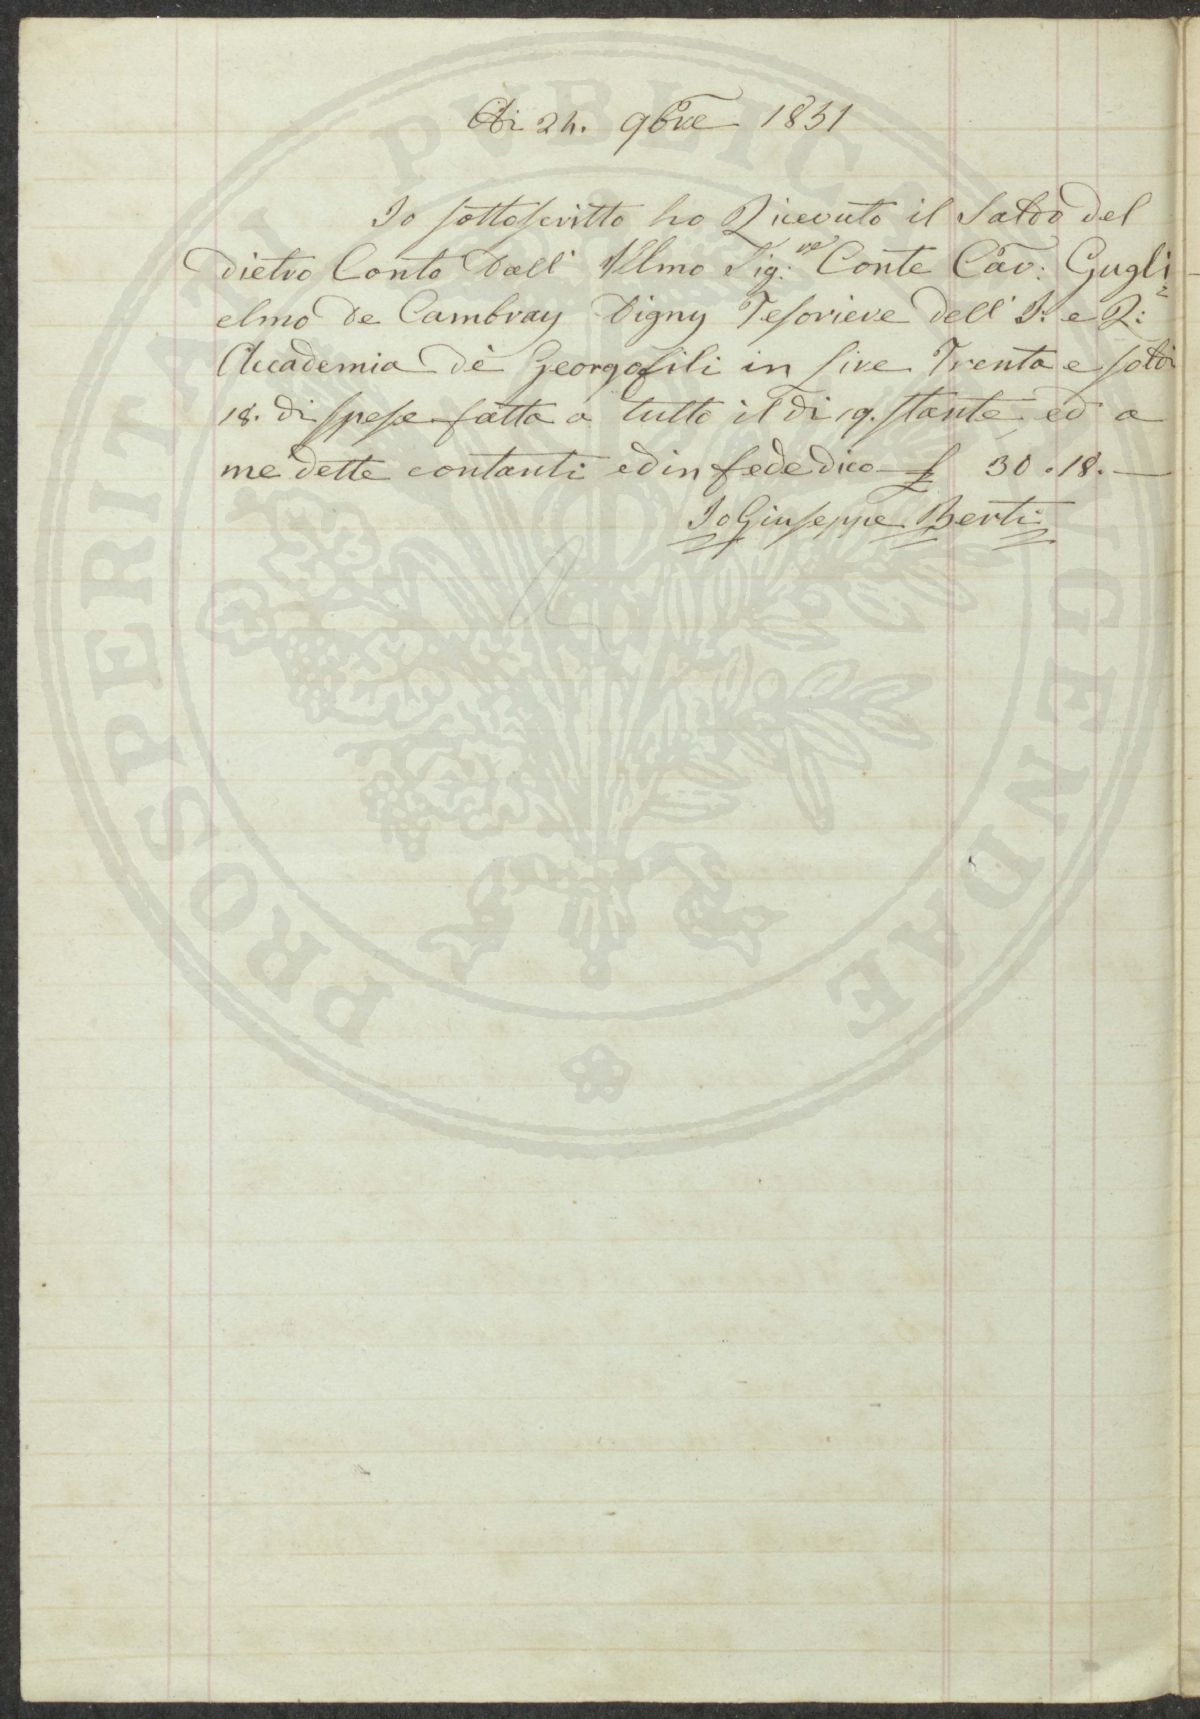 Adi 24. 9bre 1831
Io sottoscritto ho Ricevuto il Saldo del
dietro Conto dall' Illmo Sig:re Conte Cav: Gugli=
elmo de Cambray Digny Tesoriere dell' I: e R:
Accademia dè Georgofili in Lire Trenta e soldi
18. di spese fatta a tutto il di 19. stante, ed a
me dette contanti ed in fede dico £ 30.18.—
Io Giuseppe Berti
PROSPERITATI PVBLICAE AVGENDAE